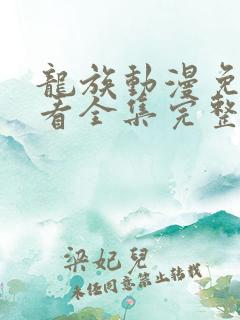 龍族動漫免
看全集完整
梁妃兒
未經同意禁止轉載